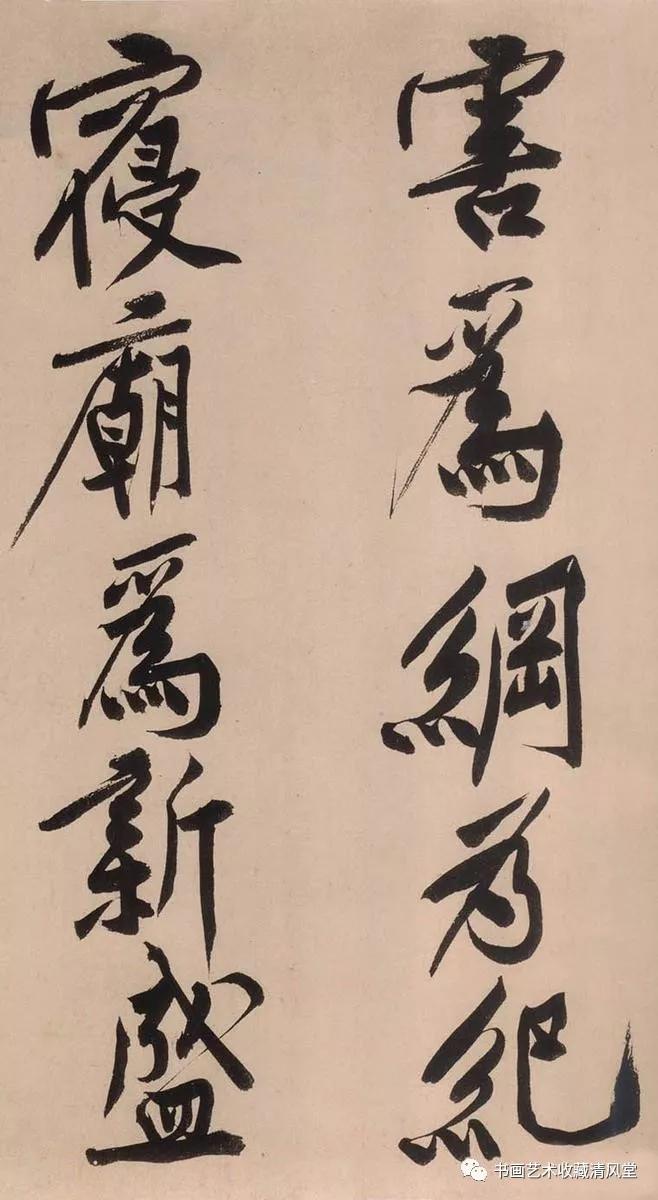 害爲綱为紀
寑廟爲新盛
书画艺术收藏清风堂